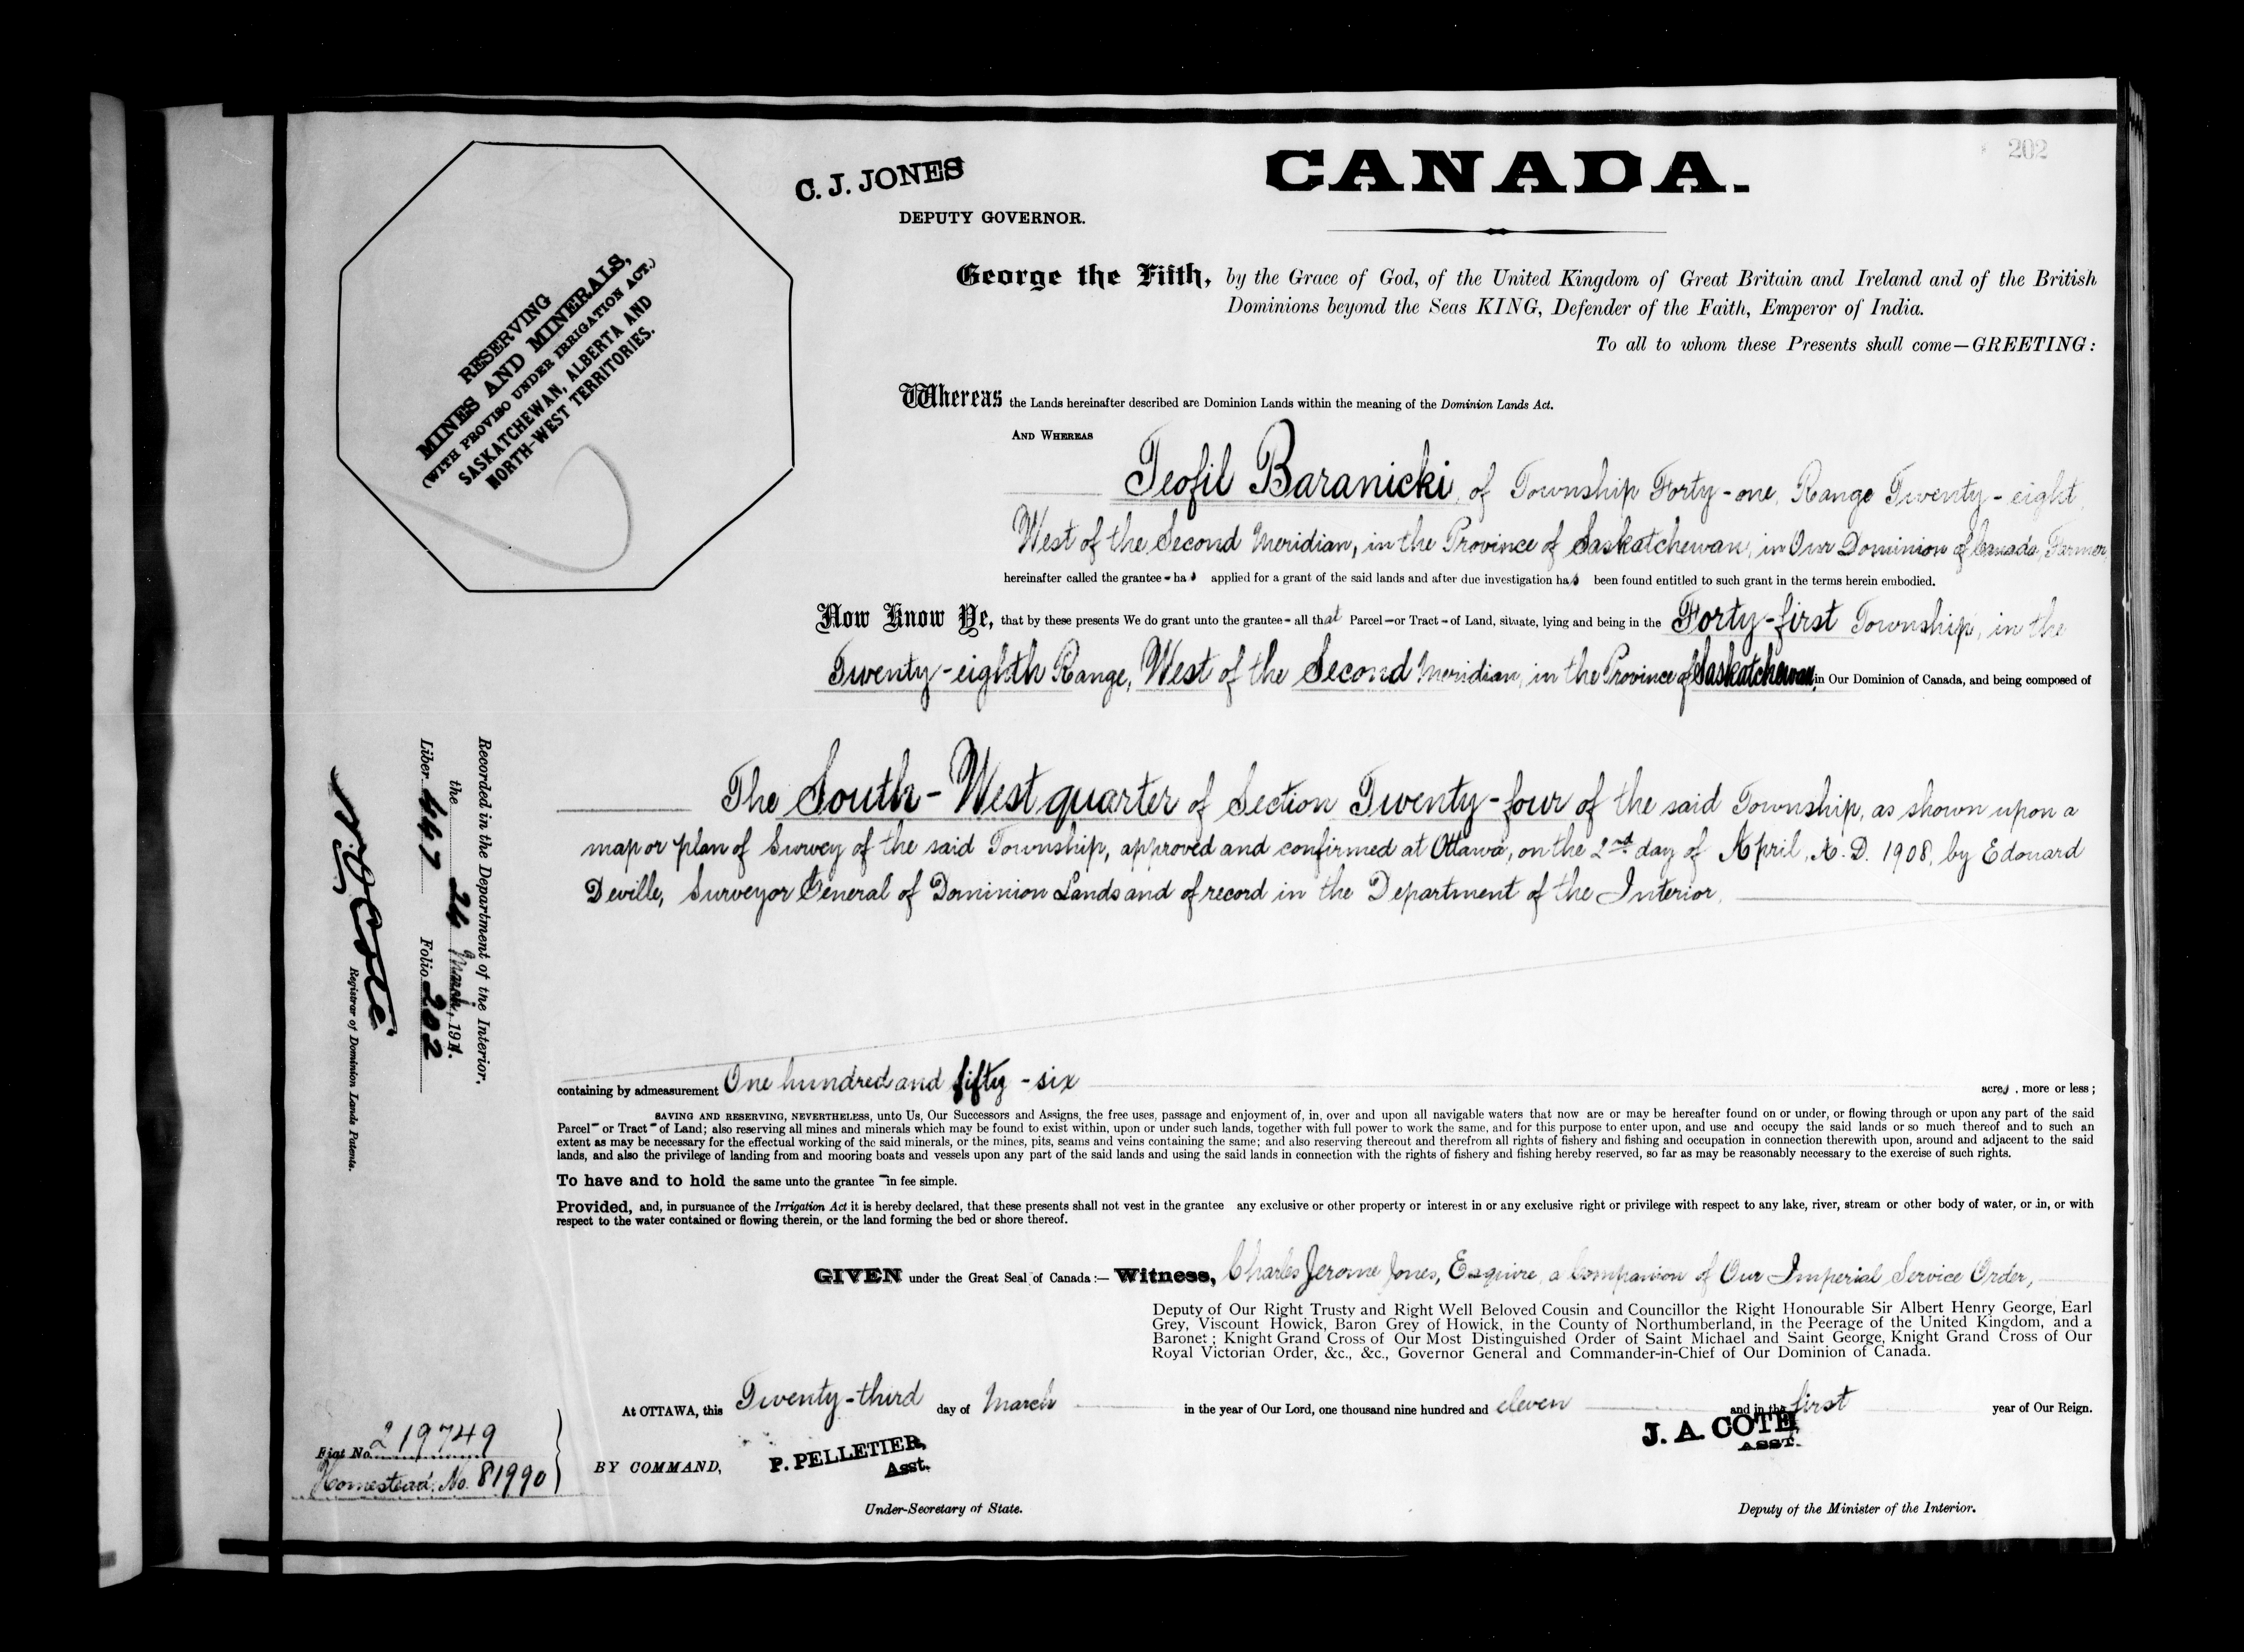 202
C. J. JONES
DEPUTY GOVERNOR.
CANADA.
RESERVING
MINES AND MINERALS,
(WITH PROVISO UNDER IRRIGATION ACT.)
SASKATCHEWAN, ALBERTA AND
NORTH-WEST TERRITORIES.
George the Fifth, by the Grace of God, of the United Kingdom of Great Britain and Ireland and of the British
Dominions beyond the Seas KING, Defender of the Faith, Emperor of India.
To all to whom these Presents shall come—GREETING:
Whereas the Lands hereinafter described are Dominion Lands within the meaning of the Dominion Lands Act.
AND WHEREAS
Teofil Baranicki, of Township Forty-one, Range Twenty-eight,
West of the Second Meridian, in the Province of Saskatchewan, in Our Dominion of Canada, Farmer,
hereinafter called the grantee - has applied for a grant of the said lands and after due investigation has been found entitled to such grant in the terms herein embodied.
Now Know Ye, that by these presents We do grant unto the grantee - all that Parcel - or Tract - of Land, situate, lying and being in the Forty-first Township, in the
Twenty-eighth Range, West of the Second Meridian, in the Province of Saskatchewan, in Our Dominion of Canada, and being composed of
The South-West quarter of Section Twenty-four of the said Township, as shown upon a
map or plan of Survey of the said Township, approved and confirmed at Ottawa, on the 2nd day of April, A. D. 1908, by Edouard
Deville, Surveyor General of Dominion Lands and of record in the Department of the Interior.
containing by admeasurement One hundred and fifty-six acres, more or less;
SAVING AND RESERVING, NEVERTHELESS, unto Us, Our Successors and Assigns, the free uses, passage and enjoyment of, in, over and upon all navigable waters that now are or may be hereafter found on or under, or flowing through or upon any part of the said
Parcel - or Tract - of Land; also reserving all mines and minerals which may be found to exist within, upon or under such lands, together with full power to work the same, and for this purpose to enter upon, and use and occupy the said lands or so much thereof and to such an
extent as may be necessary for the effectual working of the said minerals, or the mines, pits, seams and veins containing the same; and also reserving thereout and therefrom all rights of fishery and fishing and occupation in connection therewith upon, around and adjacent to the said
lands, and also the privilege of landing from and mooring boats and vessels upon any part of the said lands and using the said lands in connection with the rights of fishery and fishing hereby reserved, so far as may be reasonably necessary to the exercise of such rights.
To have and to hold the same unto the grantee - in fee simple.
Provided, and, in pursuance of the Irrigation Act it is hereby declared, that these presents shall not vest in the grantee any exclusive or other property or interest in or any exclusive right or privilege with respect to any lake, river, stream or other body of water, or in, or with
respect to the water contained or flowing therein, or the land forming the bed or shore thereof.
GIVEN under the Great Seal of Canada:— Witness, Charles Jerome Jones, Esquire, a Companion of Our Imperial Service Order,
Deputy of Our Right Trusty and Right Well Beloved Cousin and Councillor the Right Honourable Sir Albert Henry George, Earl
Grey, Viscount Howick, Baron Grey of Howick, in the County of Northumberland, in the Peerage of the United Kingdom, and a
Baronet; Knight Grand Cross of Our Most Distinguished Order of Saint Michael and Saint George, Knight Grand Cross of Our
Royal Victorian Order, &c., &c., Governor General and Commander-in-Chief of Our Dominion of Canada.
At OTTAWA, this Twenty-third day of March in the year of Our Lord, one thousand nine hundred and eleven and in the first year of Our Reign.
BY COMMAND,
P. PELLETIER,
Asst.
Under-Secretary of State.
J. A. COTE,
ASST.
Deputy of the Minister of the Interior.
Recorded in the Department of the Interior,
the 24 March, 1911.
Liber 447 Folio 202
N. O. Coté
Registrar of Dominion Lands Patents.
Fiat No. 219749
Homestead. No. 81990